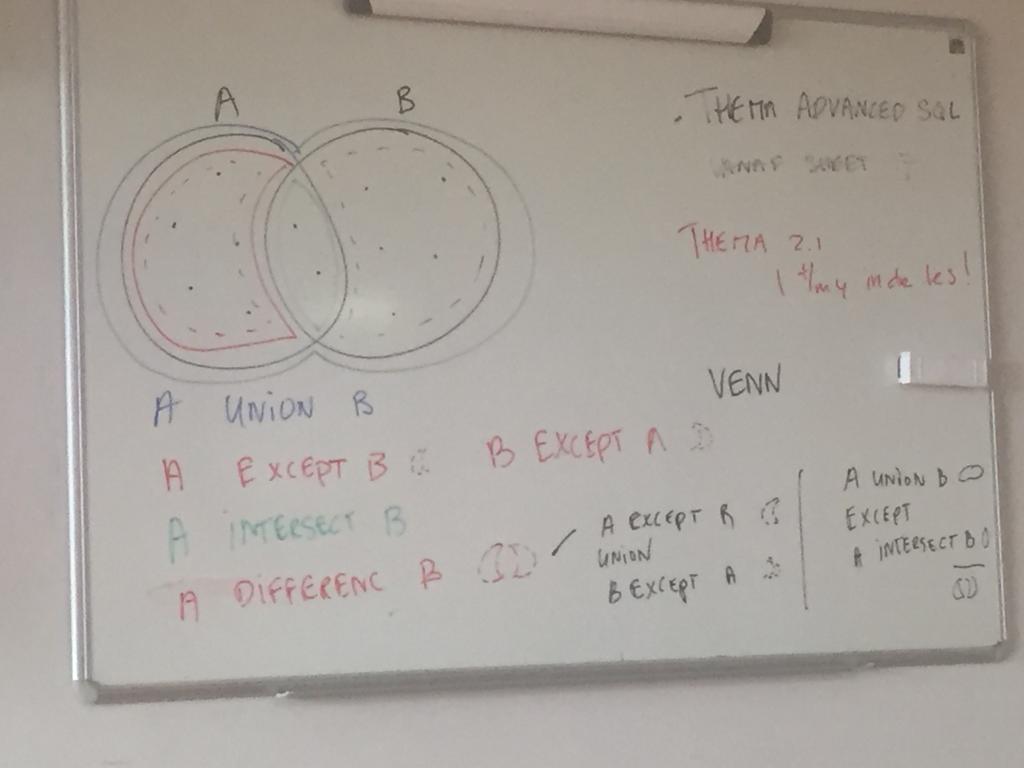 A B
. THEMA ADVANCED SQL
VANAF SHEET
THEMA 2.1
1 t/m 4
VENN
A UNION B
A EXCEPT B B EXCEPT A
A INTERSECT B
A DIFFERENC B
A EXCEPT B
UNION
B EXCEPT A
A UNION B
EXCEPT
A INTERSECT B